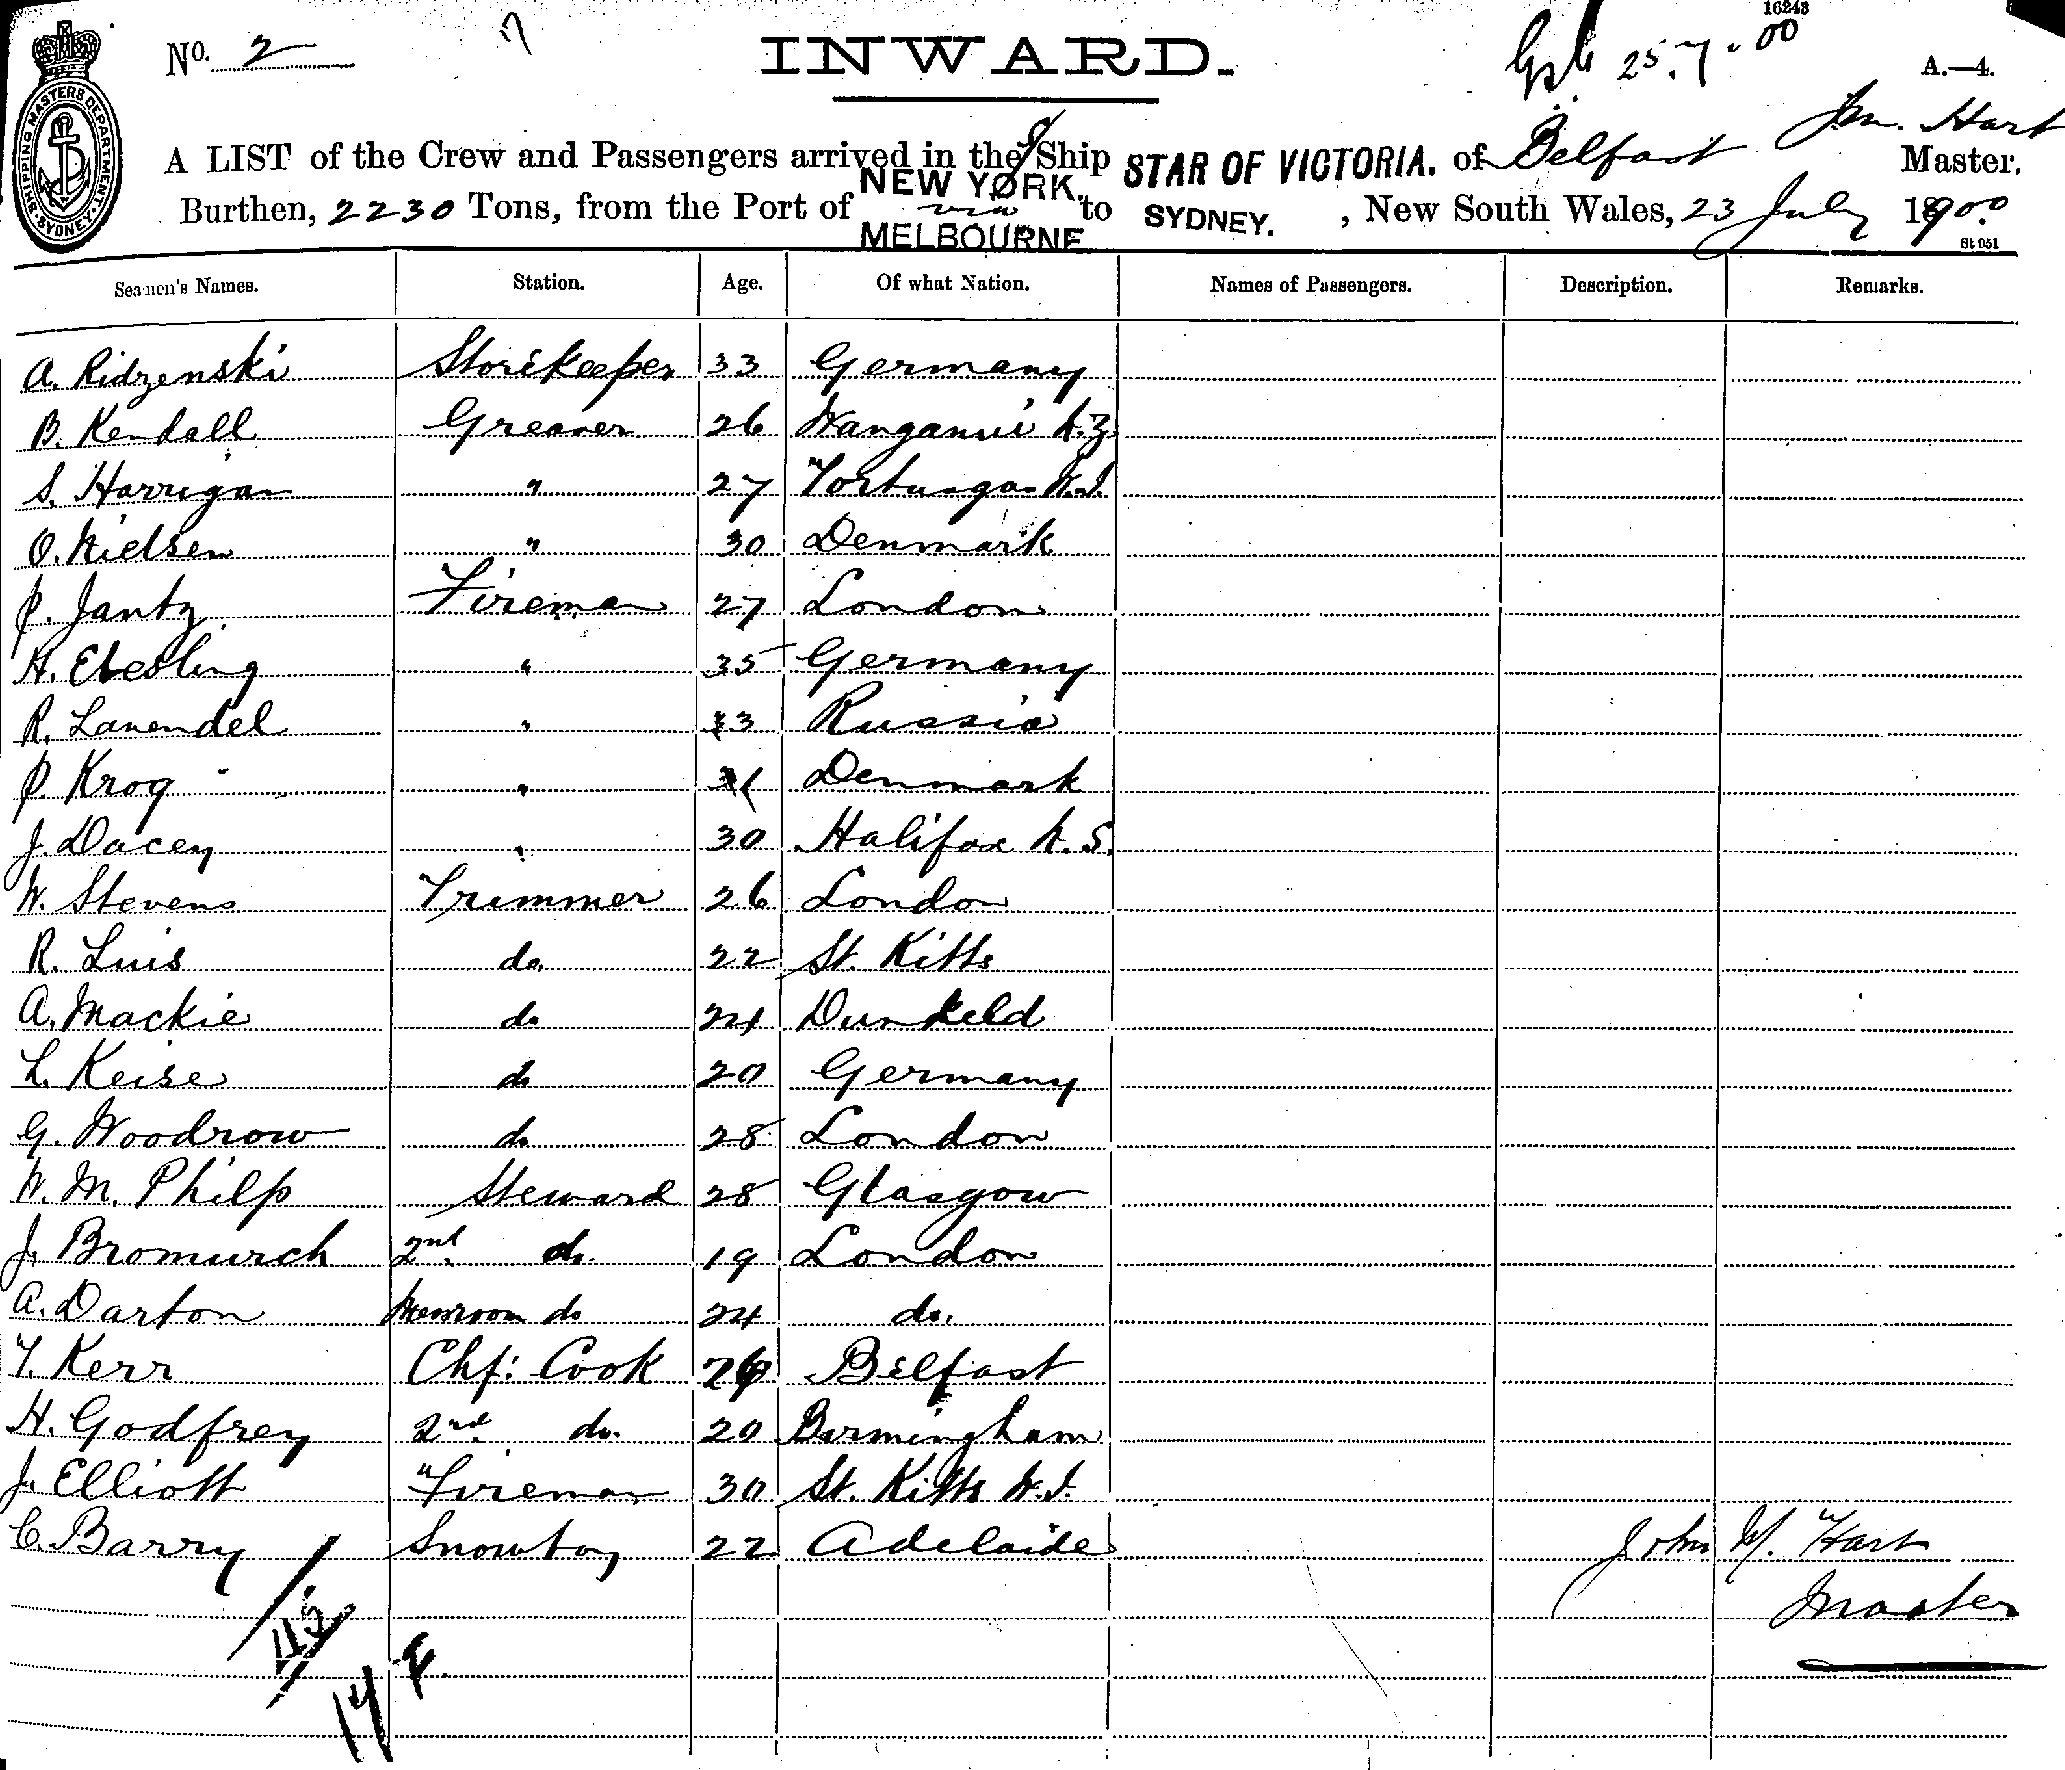 16243
No. 2
INWARD.
25.7.00
A.—4.
SHIPPING MASTERS DEPARTMENT SYDNEY
Jm. Hart
A LIST of the Crew and Passengers arrived in the S Ship STAR OF VICTORIA. of Belfast Master,
Burthen, 2230 Tons, from the Port of NEW YORK via MELBOURNE to SYDNEY. , New South Wales, 23 July 1900.
St 051
Seamen's Names. Station. Age. Of what Nation. Names of Passengers. Description. Remarks.
A. Ridzenski Storekeeper 33 Germany
B. Kendall Greaser 26 Wanganui N.Z.
S. Harrigan " 27 Tortugas W.I.
O. Nielsen " 30 Denmark
P. Jantz. Fireman 27 London
H. Ebesling " 35 Germany
R. Lavendel " 33 Russia
P. Krog " Denmark
J. Dacey " 30 Halifax N.S.
W. Stevens Trimmer 26 London
R. Luis do. 22 St. Kitts
A. Mackie do 24 Dunkeld
L. Keise do 20 Germany
G. Woodrow do 28 London
W. M. Philp Steward 28 Glasgow
J. Bromwich 2nd. do. 19 London
A. Darton Messroom do 24 do.
T. Kerr Chf: Cook Belfast
H. Godfrey 2nd. do. 20 Birmingham
J. Elliott Fireman 30 St. Kitts W.I.
C. Barry Snowboy 22 Adelaide
John M. Hart
Master